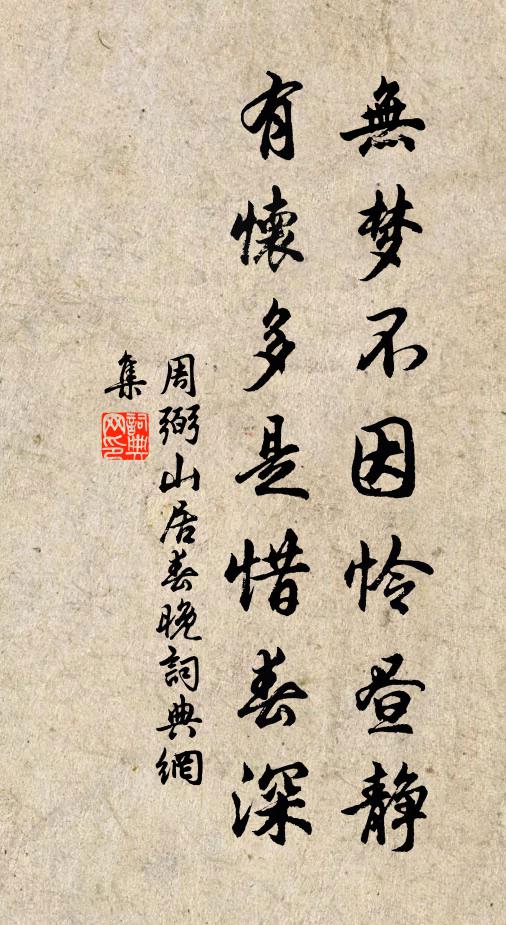 無梦不因怜昼静
有懷多是惜春深
周弼山居春晚詞典網
集
詞典网印